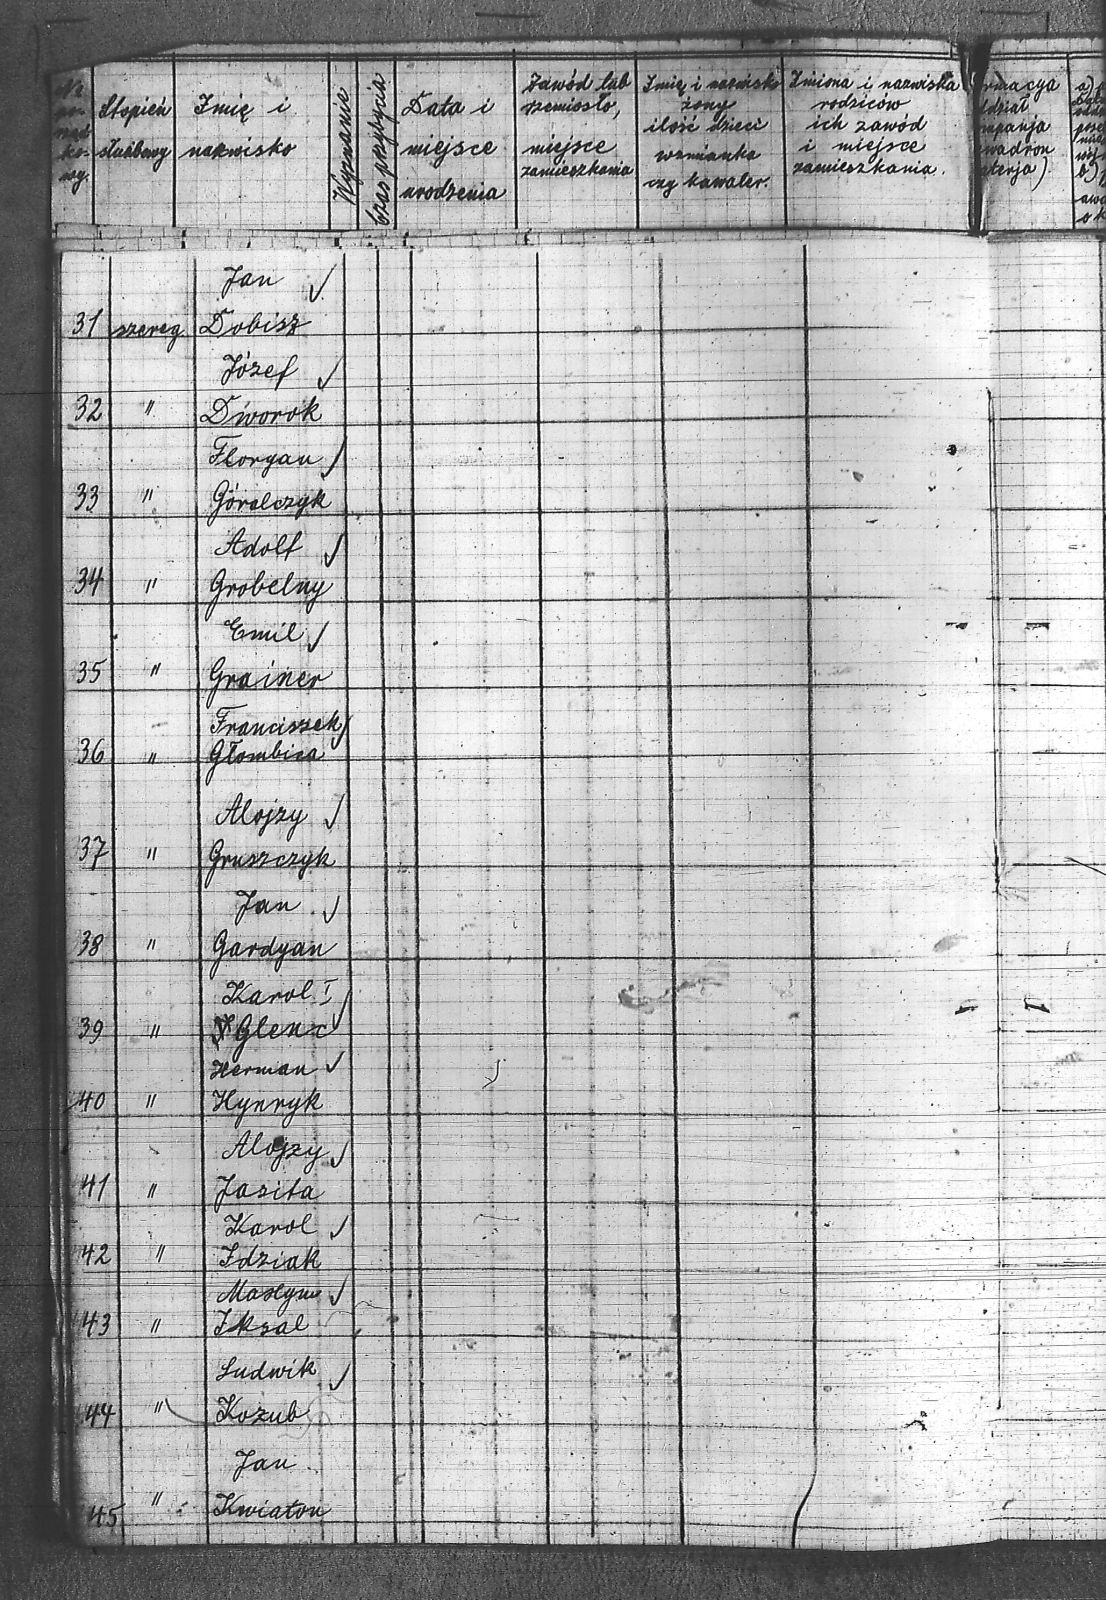 Stopień
służbowy
Imię i
nazwisko
Wyznanie
Czas przybycia
Data i
miejsce
urodzenia
Zawód lub
rzemiosło,
miejsce
zamieszkania
Imię i nazwisko
żony
ilość dzieci
wzmianka
czy kawaler.
Imiona i nazwiska
rodziców
ich zawód
i miejsce
zamieszkania.
rmacya
dział
mpanja
wadron
terja)
Jan ✓
31 szereg Dobisz
Józef ✓
32 " Dworok
Floryan ✓
33 " Góralczyk
Adolf ✓
34 " Grobelny
Emil ✓
35 " Grainer
Franciszek ✓
36 " Głombica
Alojzy ✓
37 " Gruszczyk
Jan ✓
38 " Gardyan
Karol I ✓
39 " Glenc
Herman ✓
40 " Hynryk
Alojzy ✓
41 " Jasita
Karol ✓
42 " Idziak
✓
43 " Iksal
Ludwik ✓
44 " Kozub
Jan
45 " Kwiaton